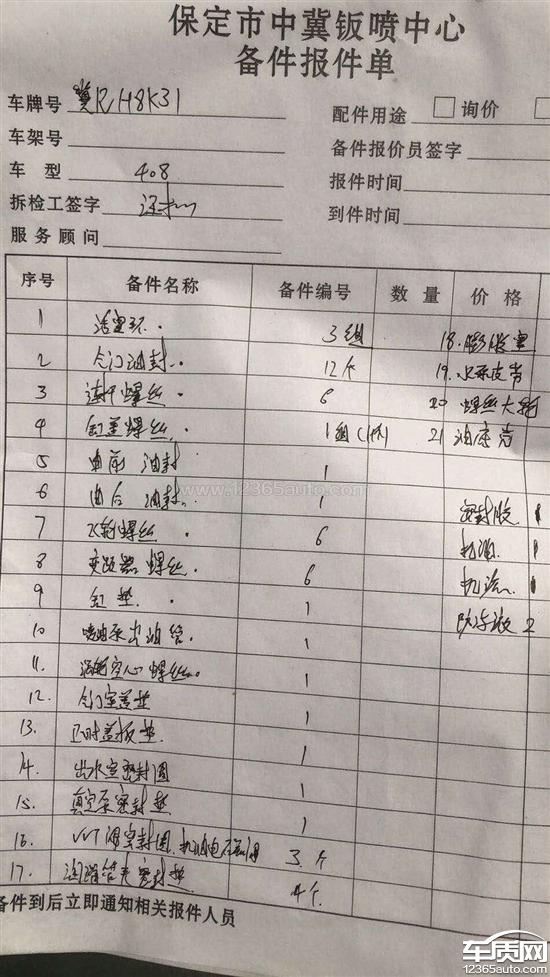 保定市中冀钣喷中心
备件报件单
车牌号 冀R H8K31 配件用途 □ 询价
车架号 备件报价员签字
车型 408 报件时间
拆检工签字 到件时间
服务顾问
序号 备件名称 备件编号 数量 价格
1 活塞环 3组 18. 膨胀室
2 气门油封 12个 19. 水泵皮带
3 连杆螺丝 6 20 螺丝大
4 缸盖螺丝 1组 21 油底壳
5 曲前油封 1
6 曲后油封 1 密封胶 1
7 飞轮螺丝 6 机油 1
8 变距器螺丝 6 机滤 1
9 缸垫 1 防冻液 2
10 喷油泵出油管 1
11. 涡轮空心螺丝 1
12. 气门室盖垫 1
13. 正时盖板垫 1
14. 出水室密封圈 1
15. 真空泵密封垫 1
16. VVT 密封圈. 机油电 3个
17. 密封垫 4个
备件到后立即通知相关报件人员
www.12365auto.com
车质网
12365auto.com